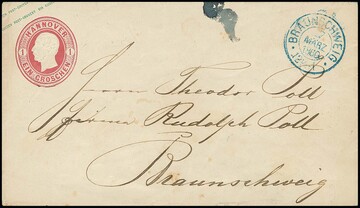 HANNOVER
EIN GROSCHEN
1 1
BRAUNSCHWEIG
MÄRZ
Herrn Theodor Poll
Firma Rudolph Poll
Braunschweig